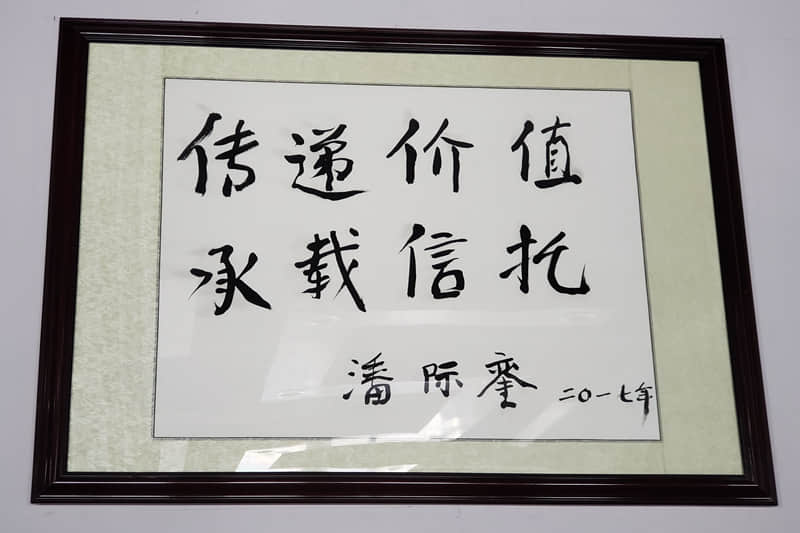 传递价值
承载信托
潘际銮 二〇一七年